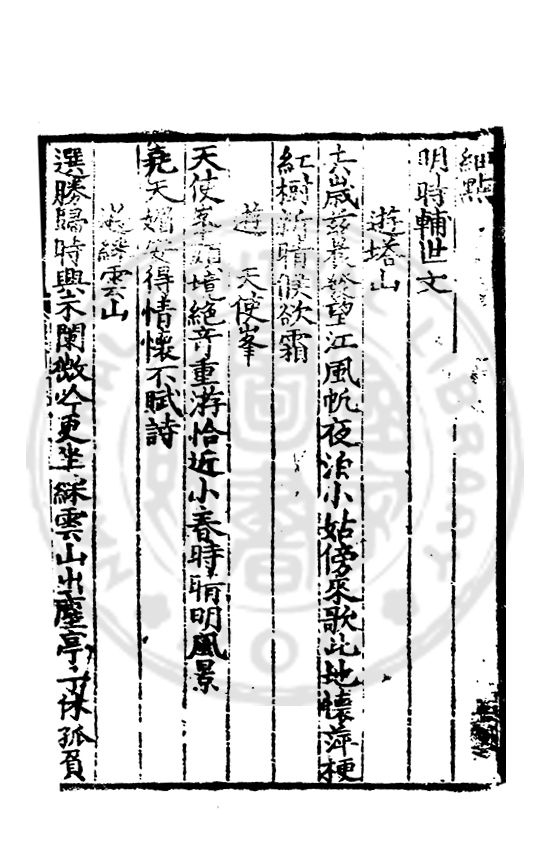 細點
明時輔世文
遊塔山
六歲茲晨發望江風帆夜泊小姑傍來歌此地懷萍梗
紅樹新晴候欲霜
遊天使峯
天使峯頭境絶奇重游恰近小春時晴明風景
堯天媚安得情懷不賦詩
遊綵雲山
選勝歸時興不闌微吟更坐綵雲山出塵亭子休孤負